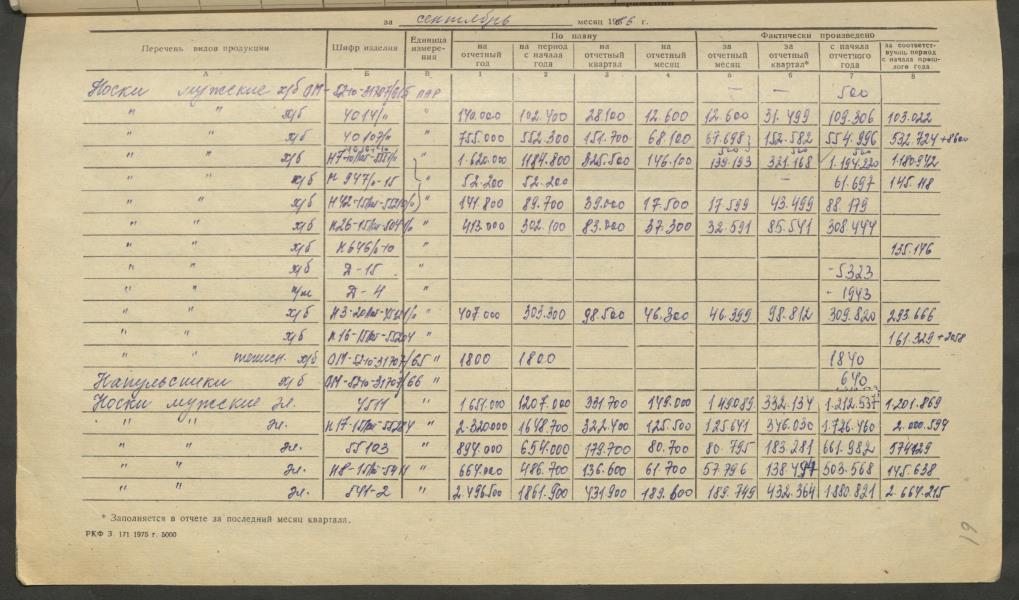 за сентябрь месяц 1966 г.
Перечень видов продукции | Шифр изделия | Единица измерения | По плану | Фактически произведено
на отчетный год | на период с начала года | на отчетный квартал | на отчетный месяц | за отчетный месяц | за отчетный квартал* | с начала отчетного года | за соответствующ. период с начала прошлого года
А | Б | В | 1 | 2 | 3 | 4 | 5 | 6 | 7 | 8
Носки мужские х/б | ОМ-5210-31707/65 | пар | – | – | 500
" " х/б | 4014/0 | " | 140.000 | 102.400 | 28100 | 12.600 | 12.600 | 31.499 | 109.306 | 103.022
" " х/б | 40107/0 | " | 755.000 | 552.300 | 151.700 | 68.100 | 67.698 | 152.582 | 554.996 | 532.724+8600
" " х/б | " | 1.620.000 | 1184.800 | 325.500 | 146.100 | 139.193 | 321.168 | 1.194.220 | 1.180.942
" " х/б | Н 947/0-15 | " | 52.200 | 52.200 | – | 61.697 | 145.118
" " х/б | " | 141.800 | 89.700 | 39.000 | 17.500 | 17.599 | 43.499 | 88.179
" " х/б | " | 413.000 | 302.100 | 83.000 | 37.300 | 32.591 | 85.541 | 308.444
" " х/б | Н646/0-10 | " | 135.146
" " х/б | Д-15 | " | -5323
" " | Д-4 | " | -1943
" " х/б | " | 407.000 | 303.300 | 98.500 | 46.300 | 46.399 | 98.812 | 309.820 | 293.666
" " х/б | " | 161.329+2058
" " х/б | ОМ-5210-31707/65 | " | 1800 | 1800 | 1840
Напульсники х/б | ОМ-5210-31707/66 | " | 640
Носки мужские эл. | 4511 | " | 1651.000 | 1207.000 | 331.700 | 149.000 | 149089 | 332.134 | 1.212.537 | 1.201.869
" " эл. | " | 2.320000 | 1648.700 | 322.400 | 125.500 | 125641 | 346.030 | 1.726.460 | 2.000.594
" " эл. | 55103 | " | 894.000 | 654.000 | 179.700 | 80.700 | 80.795 | 183.281 | 661.982 | 574129
" " эл. | " | 664.000 | 486.700 | 136.600 | 61.700 | 57.796 | 138.494 | 503.568 | 145.638
" " эл. | 541-2 | " | 2.496.500 | 1861.900 | 431.900 | 189.600 | 189.749 | 432.364 | 1880.821 | 2.664.215
* Заполняется в отчете за последний месяц квартала.
РКФ З. 171 1975 г. 5000
19